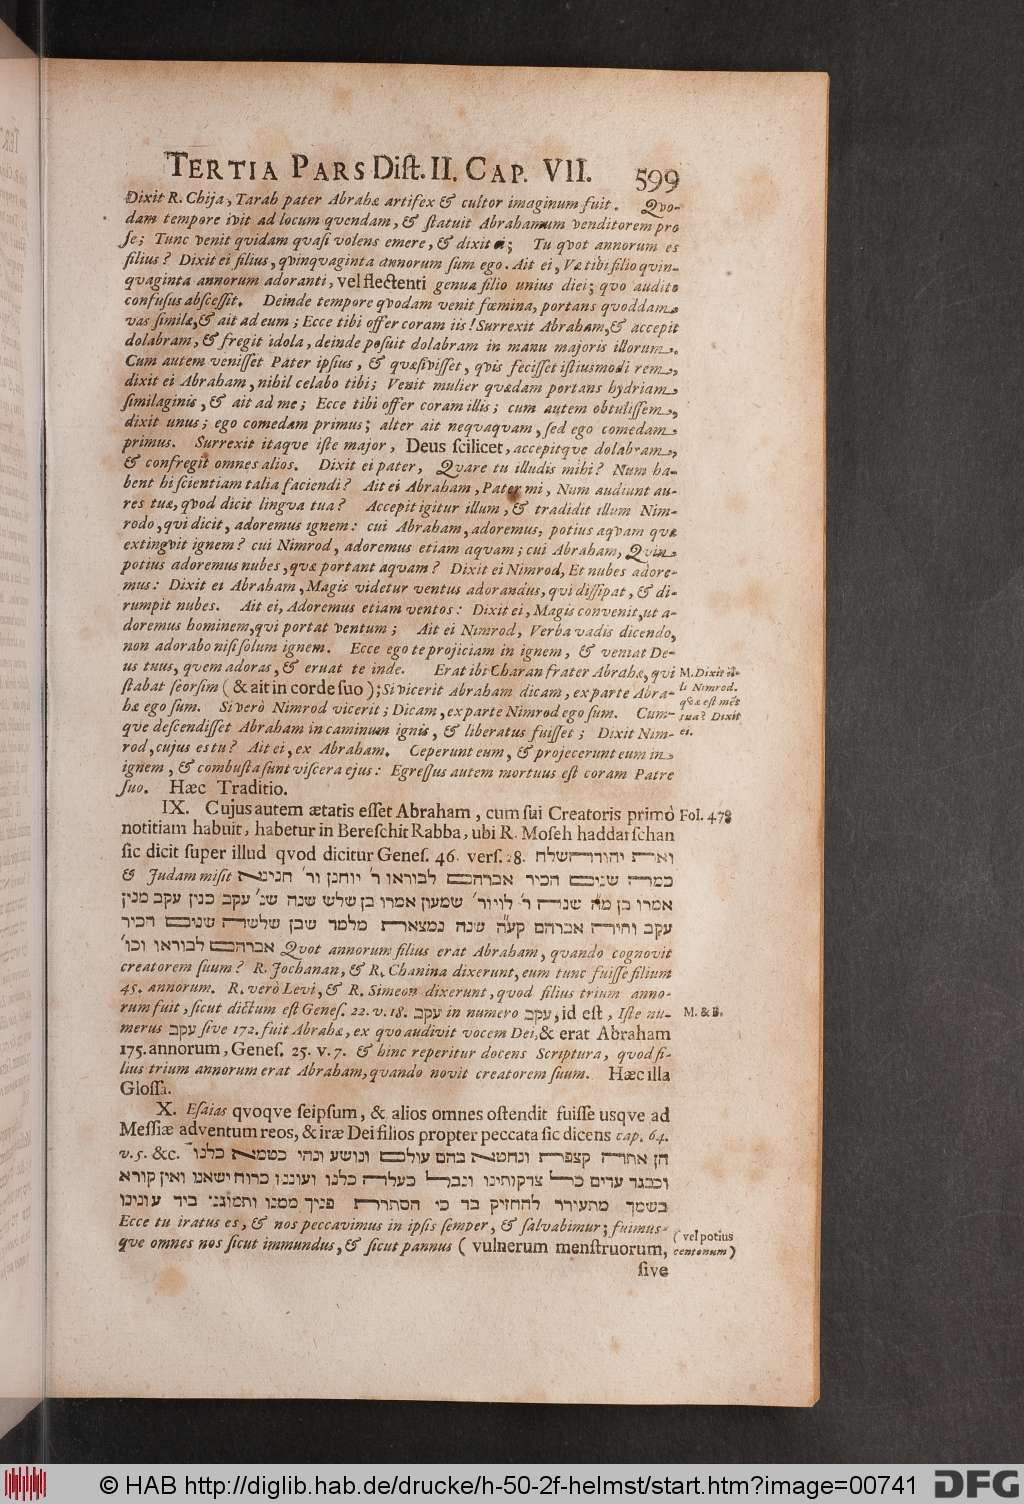 TERTIA PARS Dist. II. CAP. VII. 599
Dixit R. Chija, Tarah pater Abrahæ artifex & cultor imaginum fuit. Qvo-
dam tempore ivit ad locum qvendam, & statuit Abrahamum venditorem pro
se; Tunc venit qvidam qvasi volens emere, & dixit ei; Tu qvot annorum es
filius? Dixit ei filius, qvinqvaginta annorum sum ego. Ait ei, Væ tibi filio qvin-
qvaginta annorum adoranti, vel flectenti genua filio unius diei; qvo audito
confusus abscessit. Deinde tempore qvodam venit fœmina, portans qvoddam
vas similæ, & ait ad eum; Ecce tibi offer coram iis! Surrexit Abraham, & accepit
dolabram, & fregit idola, deinde posuit dolabram in manu majoris illorum.
Cum autem venisset Pater ipsius, & qvæsivisset, qvis fecisset istiusmodi rem,
dixit ei Abraham, nihil celabo tibi; Venit mulier qvædam portans hydriam
similaginis, & ait ad me; Ecce tibi offer coram illis; cum autem obtulissem,
dixit unus; ego comedam primus; alter ait neqvaqvam, sed ego comedam
primus. Surrexit itaqve iste major, Deus scilicet, accepitqve dolabram,
& confregit omnes alios. Dixit ei pater, Qvare tu illudis mihi? Num ha-
bent hi scientiam talia faciendi? Ait ei Abraham, Pater mi, Num audiunt au-
res tuæ, qvod dicit lingva tua? Accepit igitur illum, & tradidit illum Nim-
rodo, qui dicit, adoremus ignem: cui Abraham, adoremus, potius aqvam quæ
extingvit ignem? cui Nimrod, adoremus etiam aqvam; cui Abraham, Qvin
potius adoremus nubes, qvæ portant aquam? Dixit ei Nimrod, Et nubes adore-
mus: Dixit ei Abraham, Magis videtur ventus adorandus, qui dissipat, & di-
rumpit nubes. Ait ei, Adoremus etiam ventos: Dixit ei, Magis convenit, ut a-
doremus hominem, qui portat ventum; Ait ei Nimrod, Verba vadis dicendo,
non adorabo nisi solum ignem. Ecce ego te projiciam in ignem, & veniat De-
us tuus, quem adoras, & eruat te inde. Erat ibi Charan frater Abrahæ, qui
stabat seorsim (& ait in corde suo); Si vicerit Abraham dicam, ex parte Abra-
hæ ego sum. Si verò Nimrod vicerit; Dicam, ex parte Nimrod ego sum. Cum-
que descendisset Abraham in caminum ignis, & liberatus fuisset; Dixit Nim-
rod, cujus es tu? Ait ei, ex Abraham. Ceperunt eum, & projecerunt eum in
ignem, & combusta sunt viscera ejus: Egressus autem mortuus est coram Patre
suo. Hæc Traditio.
M. Dixit il-
li Nimrod.
qvæ est mēs
tua? Dixit
ei.
IX. Cujus autem ætatis esset Abraham, cum sui Creatoris primò
notitiam habuit, habetur in Bereschit Rabba, ubi R. Moseh haddarschan
sic dicit super illud qvod dicitur Genes. 46. vers. 28. ואת יהודה שלח
& Judam misit כמה שנים הכיר אברהם לבוראו ר׳ יוחנן ור׳ חנינא
אמרו בן מה שנה ר׳ לויור׳ שמעון אמרו בן שלש שנה שנ׳ עקב כנין עקב מנין
עקב וחיה אברהם קע״ה שנה נמצאת מלמד שבן שלשה שנים הכיר
אברהם לבוראו וכו׳ Quot annorum filius erat Abraham, quando cognovit
creatorem suum? R. Jochanan, & R. Chanina dixerunt, eum tunc fuisse filium
45. annorum. R. verò Levi, & R. Simeon dixerunt, quod filius trium anno-
rum fuit, sicut dictum est Genes. 22. v. 18. עקב in numero עקב, id est, Iste nu-
merus עקב sive 172. fuit Abrahæ, ex quo audivit vocem Dei, & erat Abraham
175. annorum, Genes. 25. v. 7. & hinc reperitur docens Scriptura, quod fi-
lius trium annorum erat Abraham, quando novit creatorem suum. Hæc illa
Glossa.
Fol. 478
M. & B.
X. Esaias qvoqve seipsum, & alios omnes ostendit fuisse usqve ad
Messiæ adventum reos, & iræ Dei filios propter peccata sic dicens cap. 64.
v. 5. &c. הן אתה קצפת ונחטא בהם עולם ונושע ונהי כטמא כלנו
וכבגד עדים כל צדקותינו ונבל כעלה כלנו ועוננו כרוח ישאנו ואין קורא
בשמך מתעורר להחזיק בך כי הסתרת פניך ממנו ותמוגנו ביד עונינו
Ecce tu iratus es, & nos peccavimus in ipsis semper, & salvabimur; fuimus-
que omnes nos sicut immundus, & sicut pannus ( vulnerum menstruorum,
(vel potius
centonum)
sive
© HAB http://diglib.hab.de/drucke/h-50-2f-helmst/start.htm?image=00741 DFG